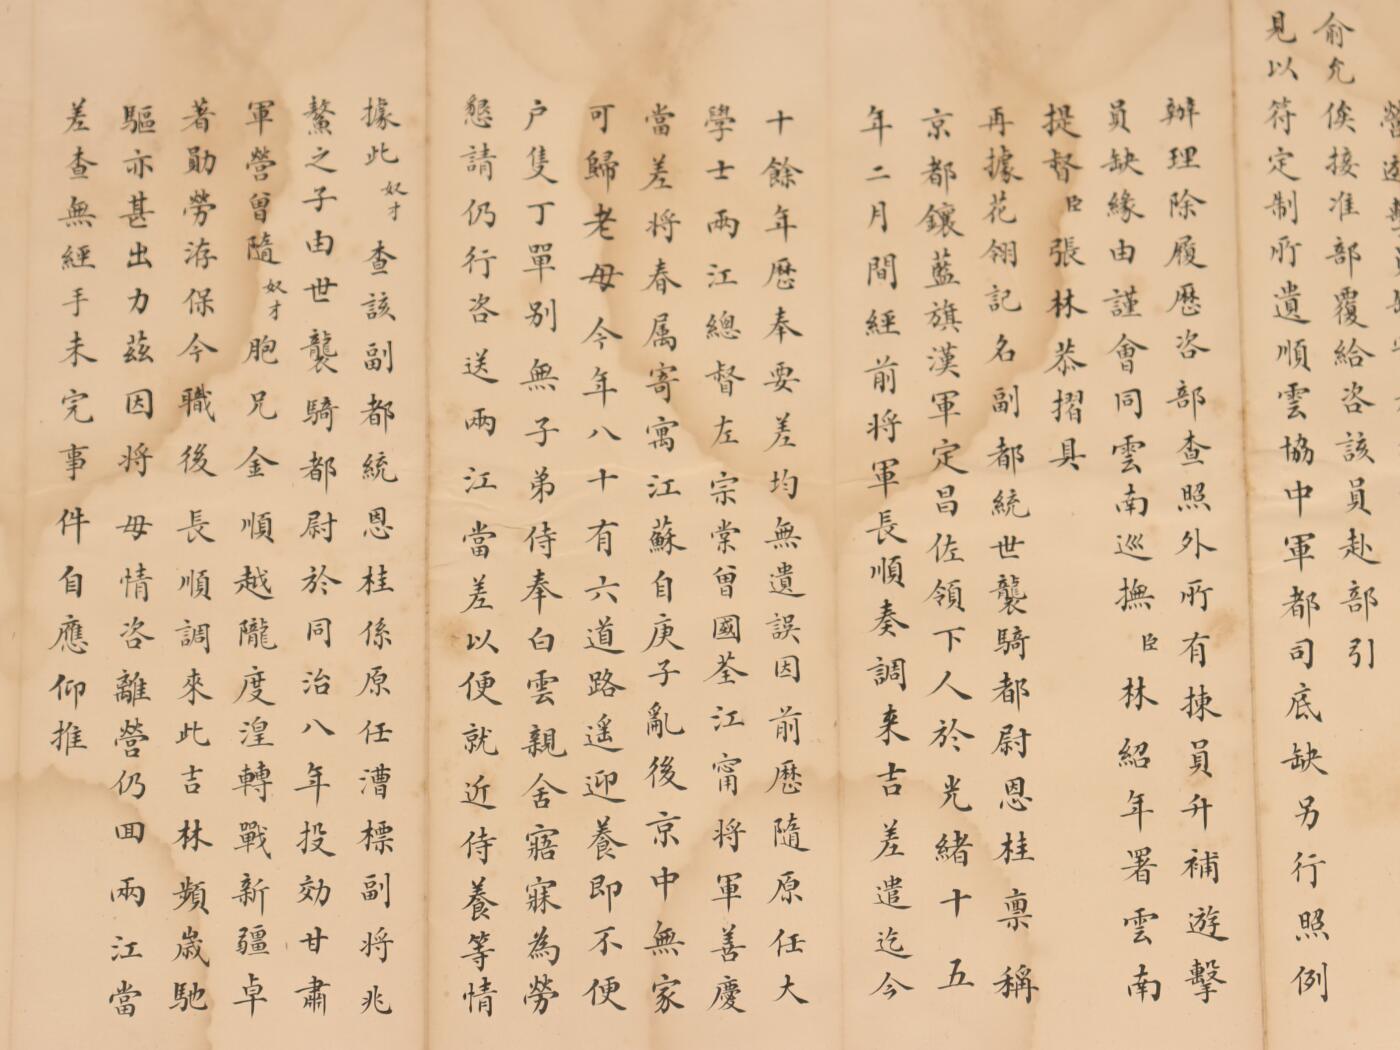 俞允俟接准部覆給咨該員赴部引
見以符定制所遺順雲協中軍都司底缺另行照例
辦理除履歷咨部查照外所有揀員升補遊擊
員缺緣由謹會同雲南巡撫臣林紹年署雲南
提督臣張林恭摺具
再據花翎記名副都統世襲騎都尉恩桂禀稱
京都鑲藍旗漢軍定昌佐領下人於光緒十五
年二月間經前將軍長順奏調来吉差遣迄今
十餘年歷奉要差均無遺誤因前歷隨原任大
學士兩江總督左宗棠曾國荃江甯將軍善慶
當差將春属寄寓江蘇自庚子亂後京中無家
可歸老母今年八十有六道路遥迎養即不便
户隻丁單别無子弟侍奉白雲親舍寤寐為勞
懇請仍行咨送兩江當差以便就近侍養等情
據此奴才查該副都統恩桂係原任漕標副將兆
鰲之子由世襲騎都尉於同治八年投効甘肅
軍營曾隨奴才胞兄金順越隴度湟轉戰新疆卓
著勛勞洊保今職後長順調來此吉林頻歲馳
驅亦甚出力茲因將母情咨離營仍回兩江當
差查無經手未完事件自應仰推